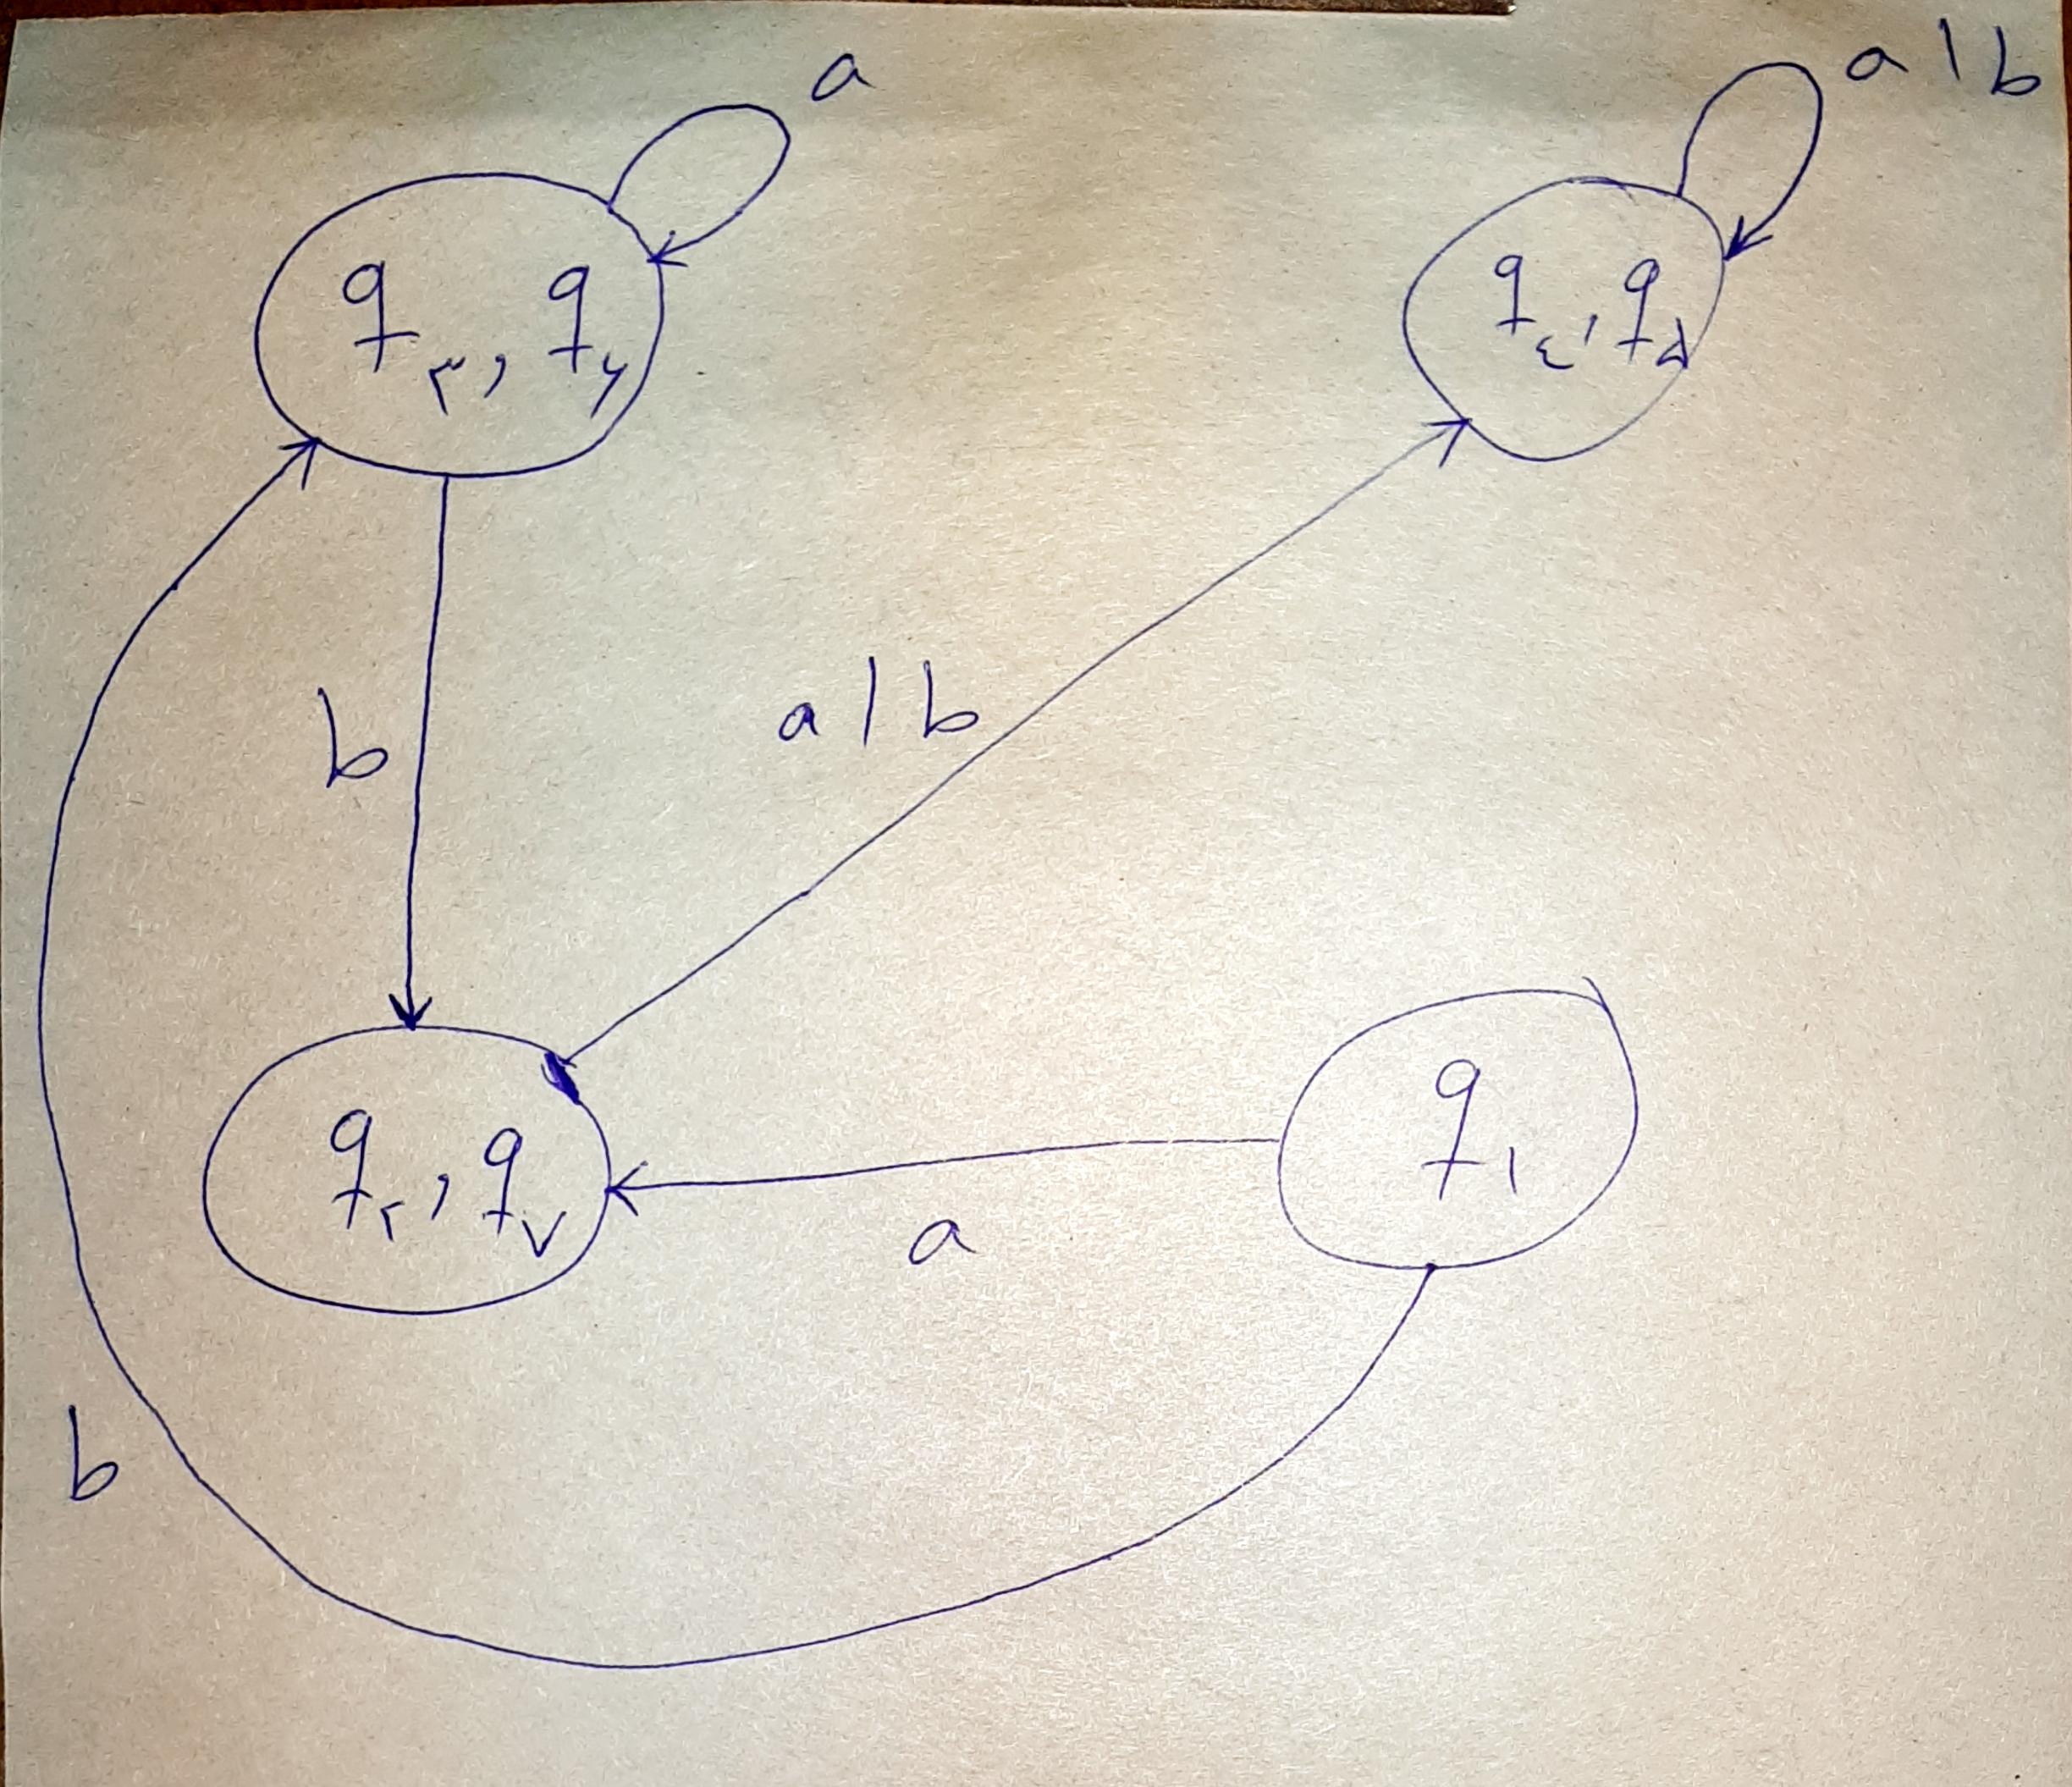 a
a | b
q۳, q۶
q٤, q۵
b
a | b
q۲, q۷
q۱
a
b